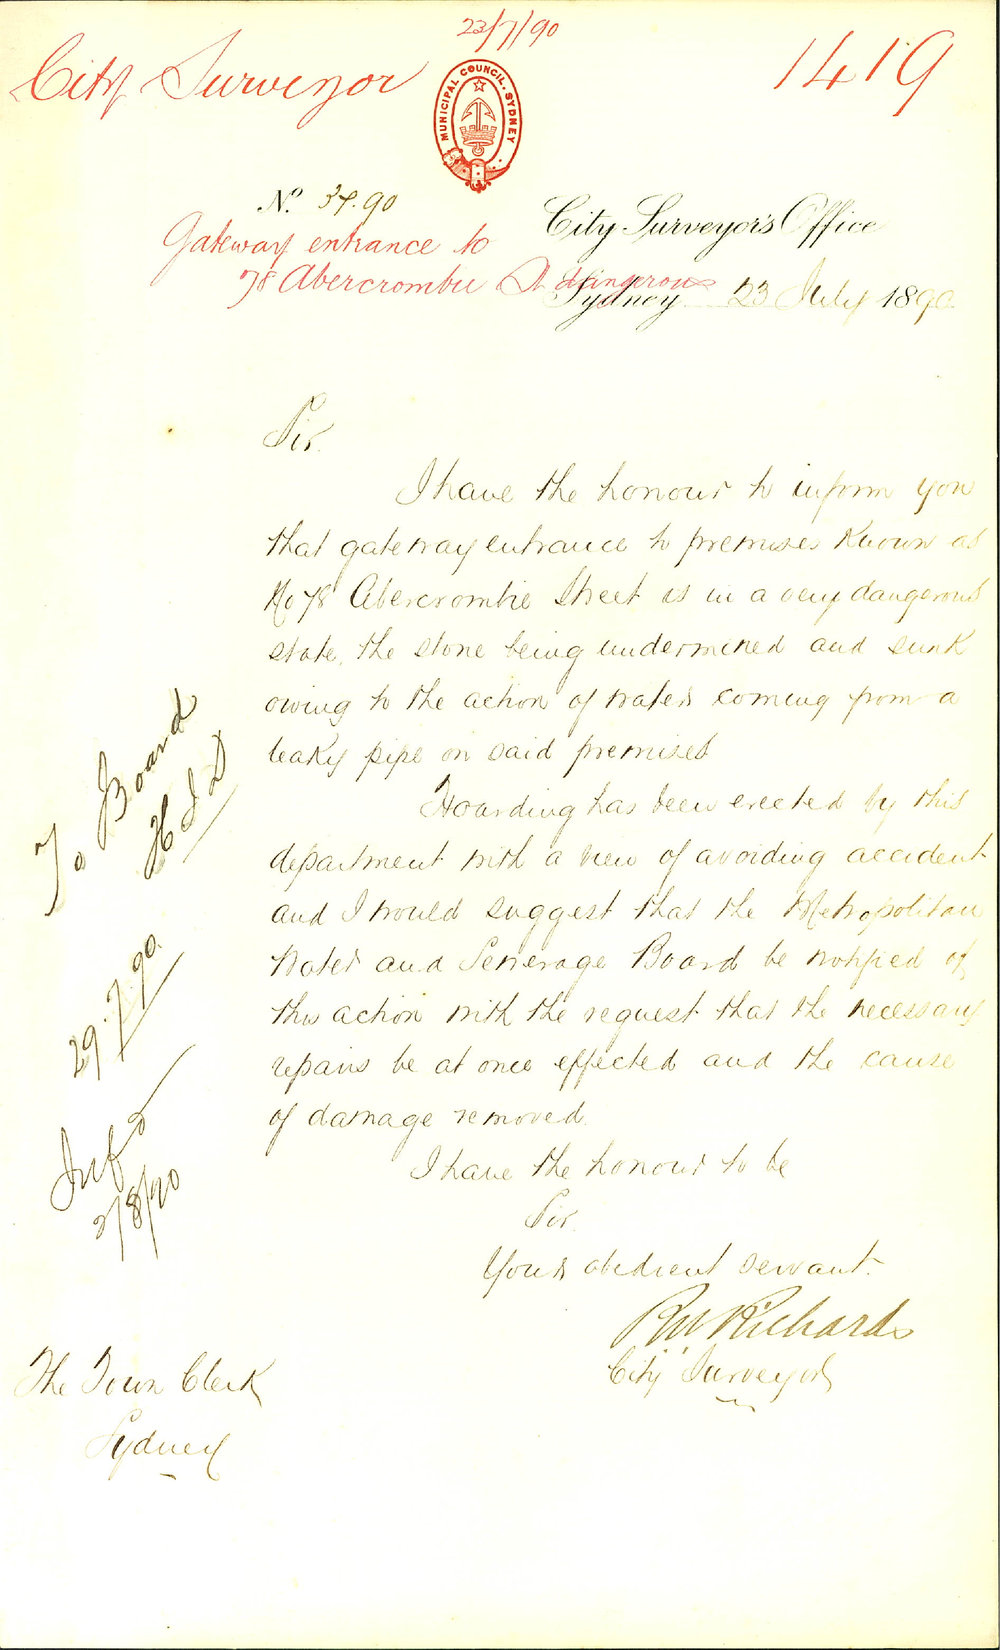 23/7/90
City Surveyor
1419
MUNICIPAL COUNCIL. SYDNEY
No. 34.90
City Surveyor's Office
Gateway entrance to
78 Abercrombie St dangerous
Sydney 23 July 1890
Sir
I have the honour to inform you
that gateway entrance to premises known as
No 78 Abercrombie Street is in a very dangerous
state, the stone being undermined and sunk
owing to the action of water coming from a
leaky pipe on said premises
Hoarding has been erected by this
department with a view of avoiding accident
and I would suggest that the Metropolitan
Water and Sewerage Board be notified of
this action with the request that the necessary
repairs be at once effected and the cause
of damage removed.
I have the honour to be
Sir.
Your obedient servant.
Richards
City Surveyor
The Town Clerk
Sydney
To Board
29.7.90.
2/8/90